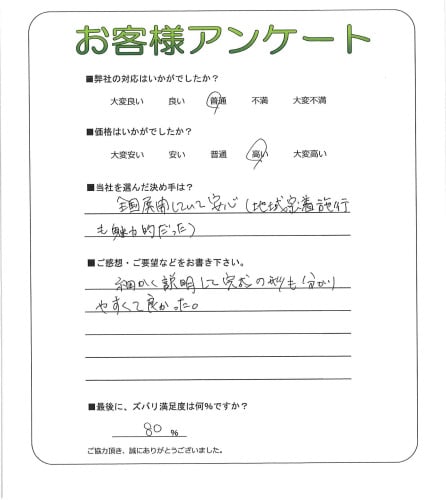 お客様アンケート
■弊社の対応はいかがでしたか？
大変良い 良い 普通 不満 大変不満
■価格はいかがでしたか？
大変安い 安い 普通 高い 大変高い
■当社を選んだ決め手は？
全国展開していて安心(地域密着施行
も魅力的だった)
■ご感想・ご要望などをお書き下さい。
細かく説明して の形も分かり
やすくて良かった。
■最後に、ズバリ満足度は何%ですか？
80 %
ご協力頂き、誠にありがとうございました。